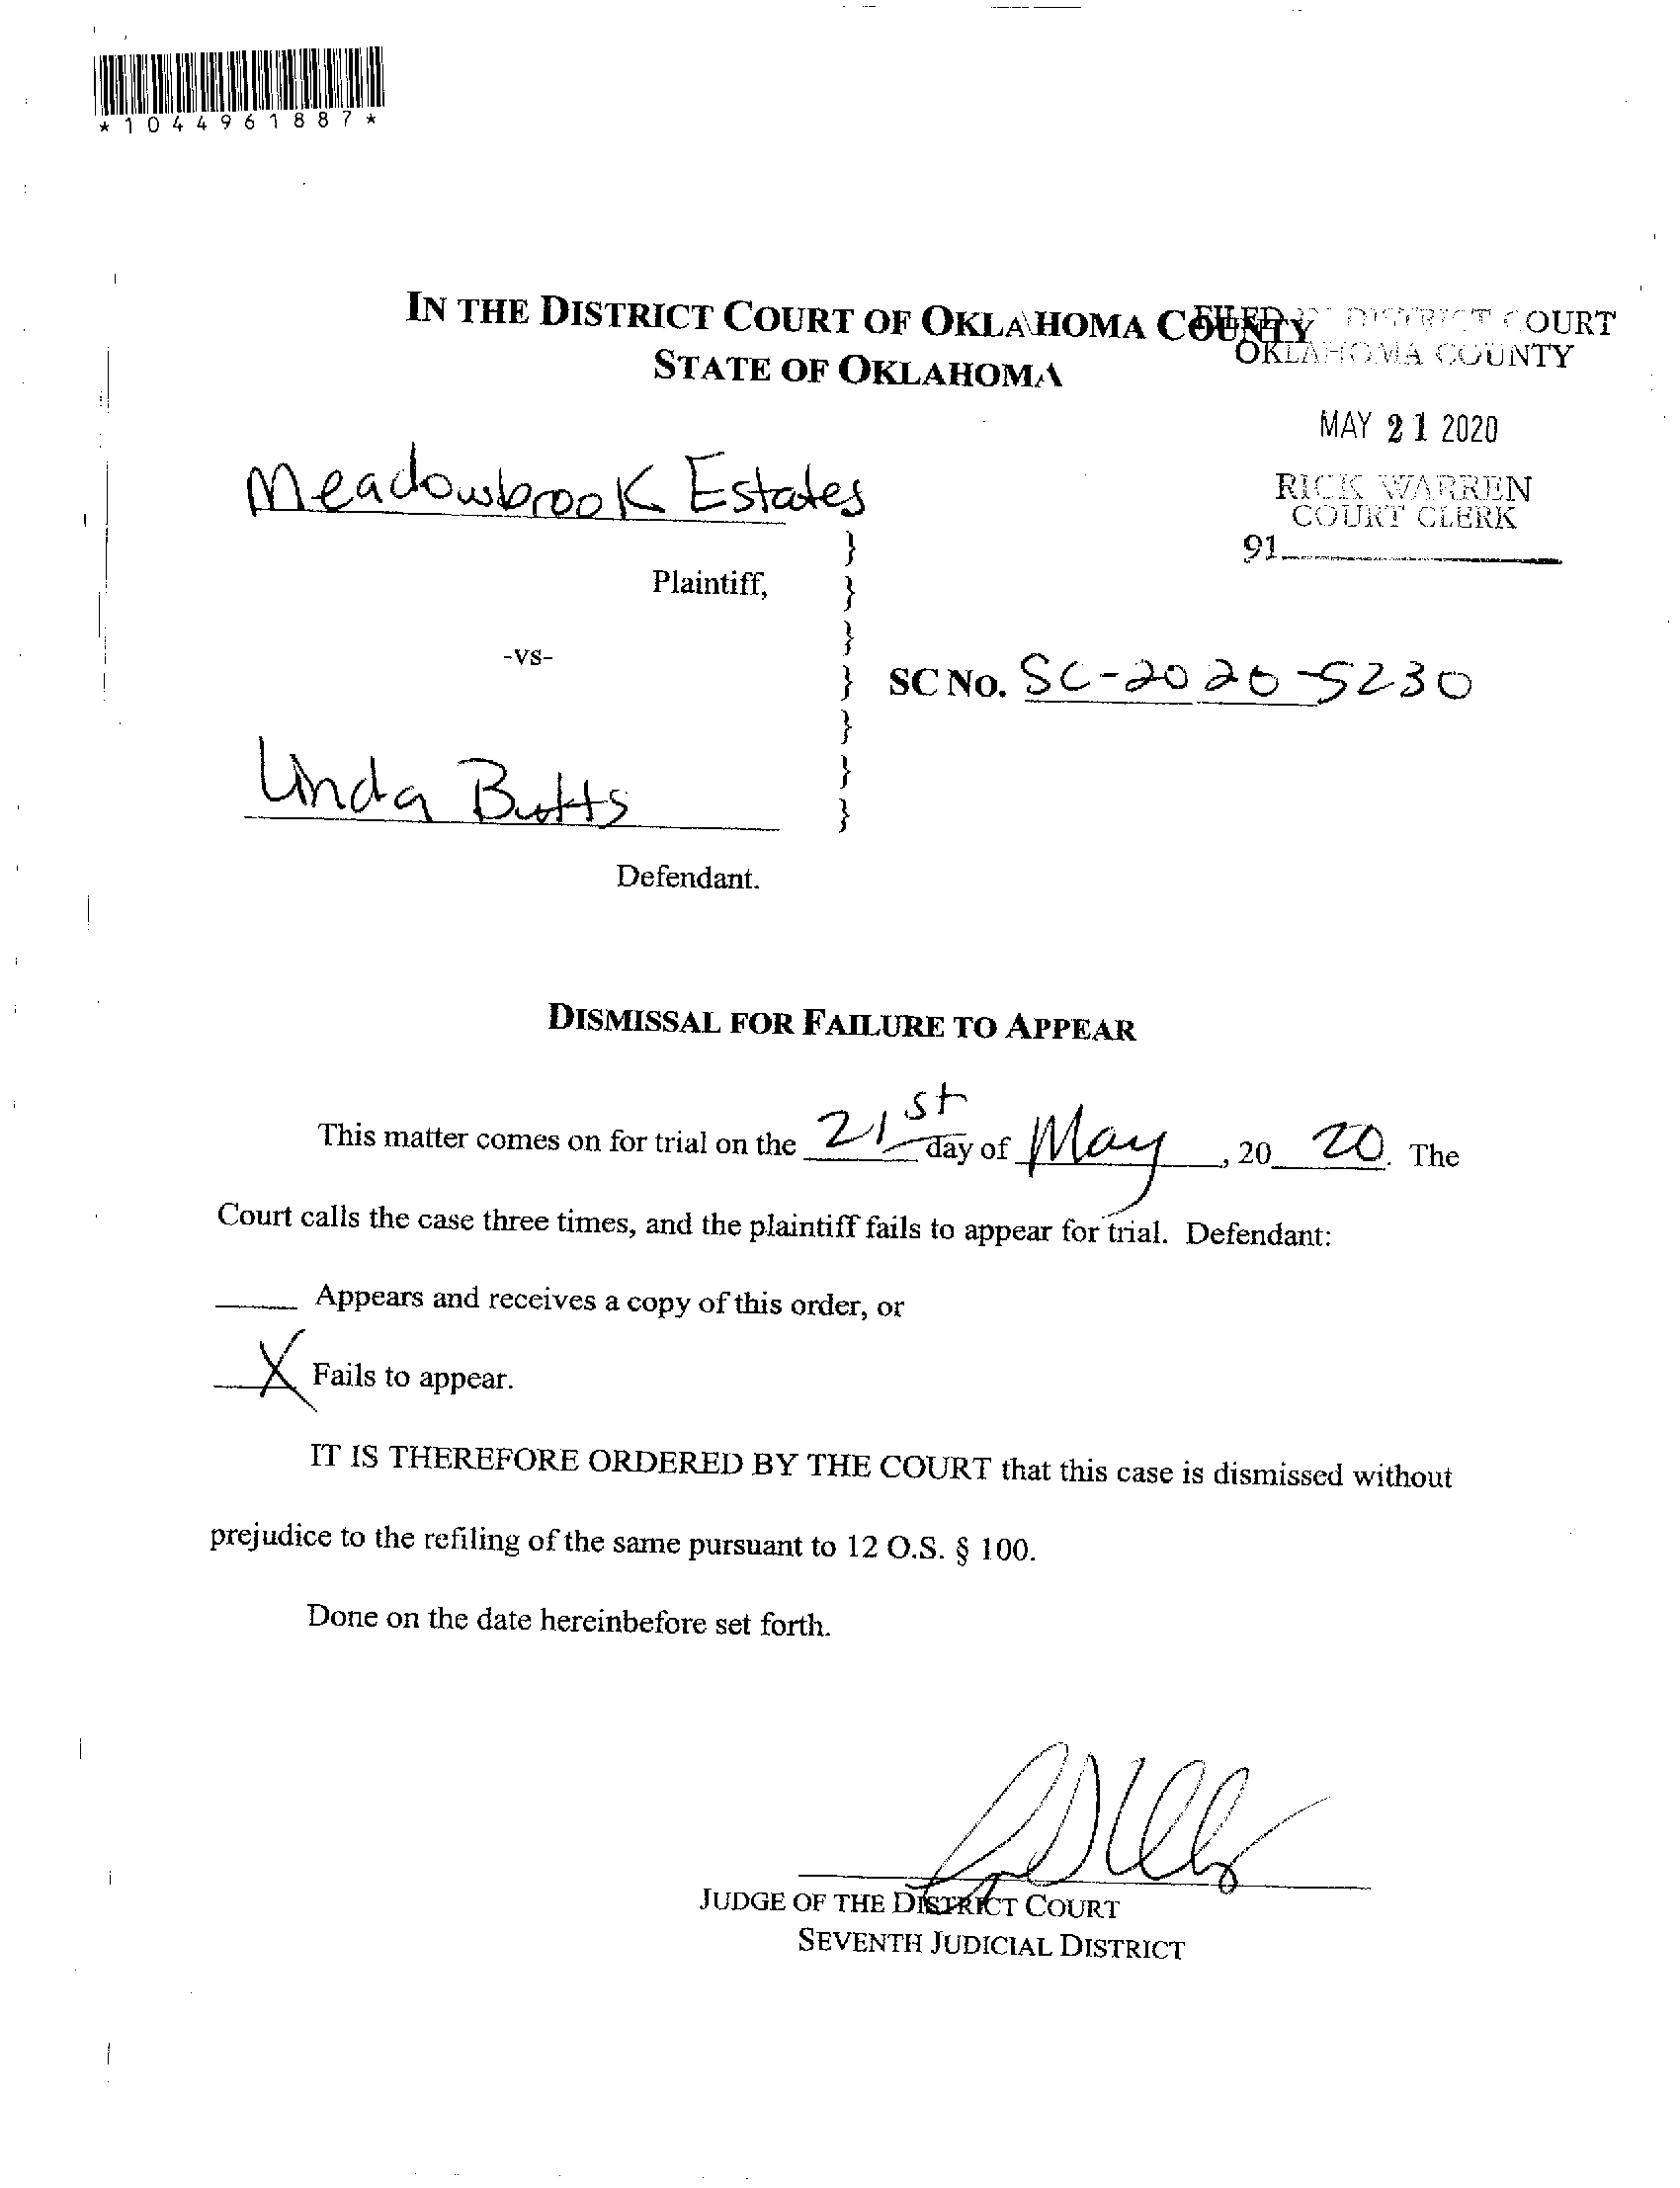 *1044961887*
IN THE DISTRICT COURT OF OKLAHOMA COUNTY
STATE OF OKLAHOMA
FILED IN DISTRICT COURT
OKLAHOMA COUNTY
MAY 21 2020
RICK WARREN
COURT CLERK
91
Meadowbrook Estates
}
Plaintiff, }
}
-vs-
} SC No. SC-2020-5230
}
}
Linda Butts
}
Defendant.
DISMISSAL FOR FAILURE TO APPEAR
This matter comes on for trial on the 21st day of May, 20 20. The
Court calls the case three times, and the plaintiff fails to appear for trial. Defendant:
____ Appears and receives a copy of this order, or
X Fails to appear.
IT IS THEREFORE ORDERED BY THE COURT that this case is dismissed without
prejudice to the refiling of the same pursuant to 12 O.S. § 100.
Done on the date hereinbefore set forth.
JUDGE OF THE DISTRICT COURT
SEVENTH JUDICIAL DISTRICT